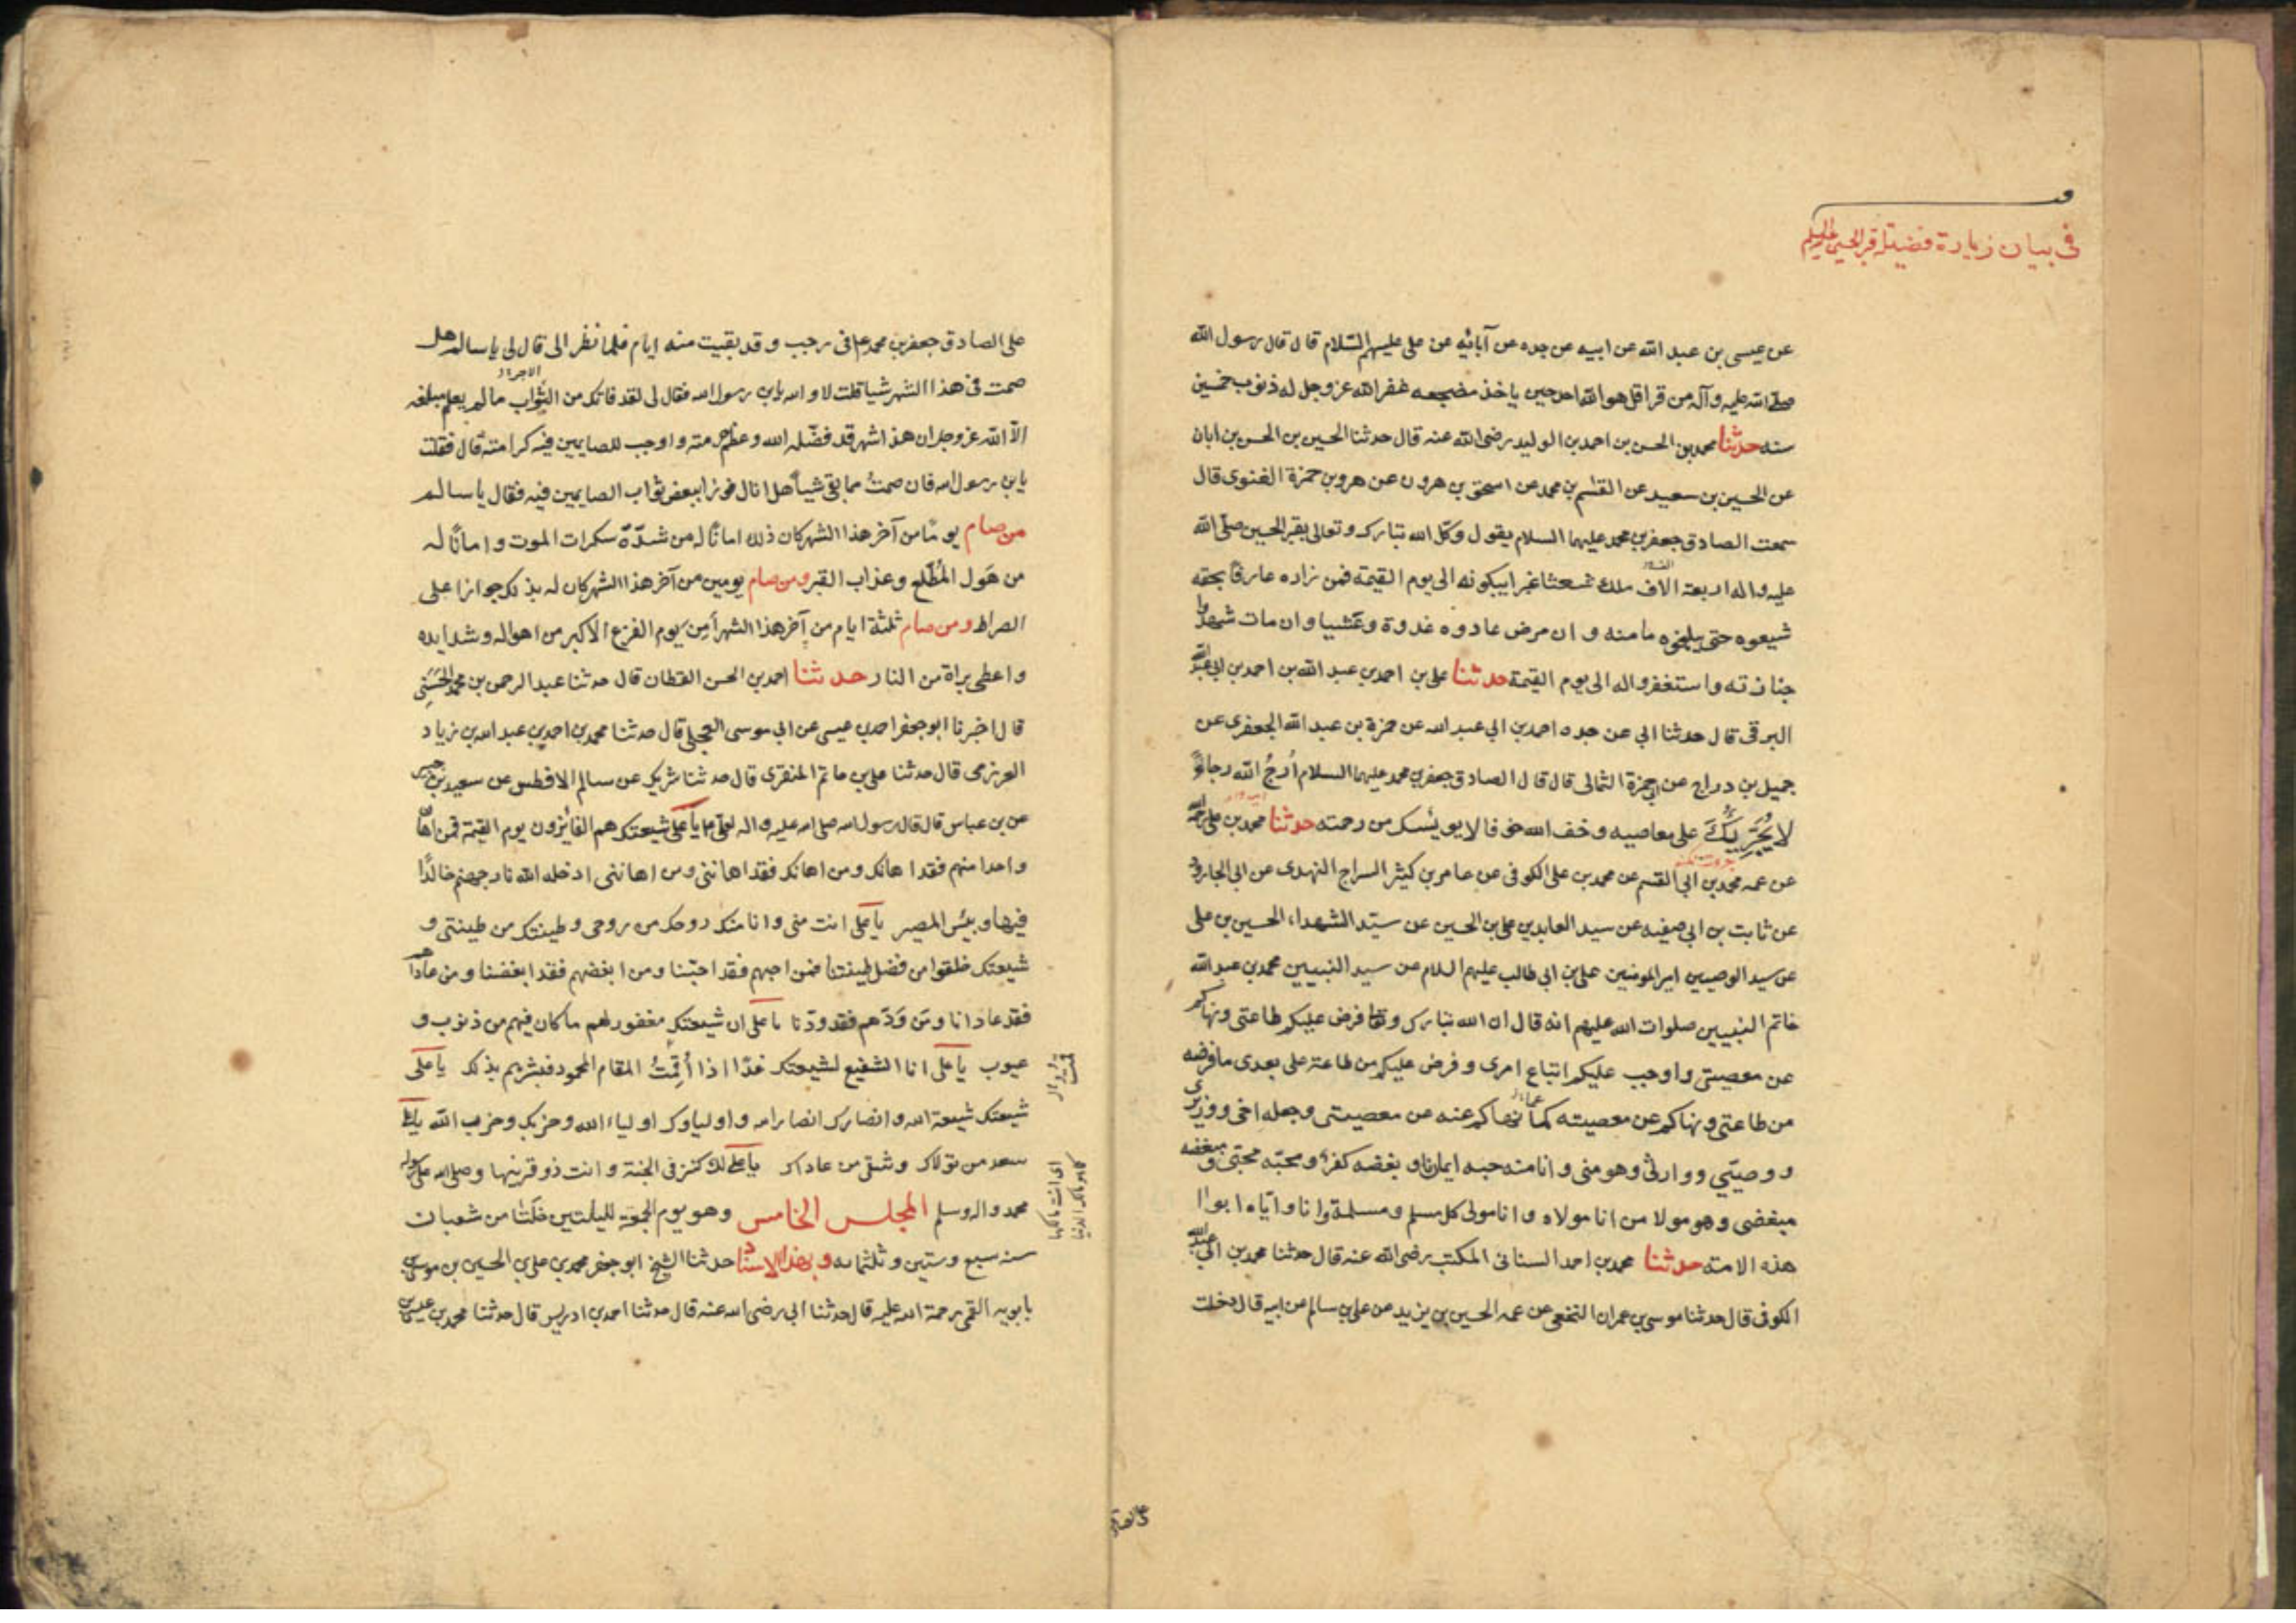 في بيان زيارة فضيلة قبر الحسين عليه السلم
عن عيسى بن عبد الله عن ابيه عن جده عن آبائه عن على عليهم السّلام قال قال رسول الله
صلى الله عليه وآله من قرا قل هو الله احد حين ياخذ مضجعه غفر الله عز وجل له ذنوب خمسين
سنه حدثنا محمد بن الحسن بن احمد بن الوليد رضى الله عنه قال حدثنا الحسين بن الحسن بن ابان
عن الحسين بن سعيد عن القسم بن محمد عن اسحق بن هرون عن هرون بن حمزة الغنوى قال
سمعت الصادق جعفر بن محمد عليهما السلام يقول وكّل الله تبارك وتعالى بقبر الحسين صلّى الله
عليه واله اربعة الاف ملك شعثا غبرا يبكونه الى يوم القيمة فمن زاره عارفًا بحقه
شيعوه حتى يبلغوه مامنه وان مرض عادوه غدوة وعَشيا وان مات شهدوا
جنازته واستغفروا له الى يوم القيمة حدثنا على بن احمد بن عبد الله بن احمد بن ابى عبد الله
البرقى قال حدثنا ابى عن جده احمد بن ابى عبد الله عن حمزة بن عبد الله الجعفرى عن
جميل بن دراج عن ابى حمزة الثمالى قال قال الصادق جعفر بن محمد عليهما السلام اُرجُ الله رجاءً
لا يُجَرِّيكَ على معاصيه وخف الله خوفا لا يويئسك من رحمته حدثنا محمد بن على رحمه الله
عن عمه محمد بن ابى القسم عن محمد بن على الكوفى عن عامر بن كثير السراج النهدى عن ابى الجارود
عن ثابت بن ابى صفيه عن سيد العابدين على بن الحسين عن سيّد الشهداء الحسين بن على
عن سيد الوصيين امير المومنين على بن ابى طالب عليهم السلام عن سيد النبيين محمد بن عبد الله
خاتم النبيين صلوات الله عليهم انه قال ان الله تبارك وتعا فرض عليكم طاعتى ونهاكم
عن معصيتى واوجب عليكم اتباع امرى وفرض عليكم من طاعة على بعدى ما فرضه
من طاعتى ونهاكم عن معصيته كما نهاكم عنه من معصيتى وجعله اخى ووزيرى
ووصيّي ووارثى وهو منى وانا منه حبه ايمان وبغضه كفر ومحبّه محبّى ومبغضه
مبغضى وهو مولا من انا مولاه وانا مولى كل مسلم ومسلمة وانا وايّاه ابوا
هذه الامة حدثنا محمد بن احمد السنانى المكتب رضى الله عنه قال حدثنا محمد بن ابى عبد الله
الكوفى قال حدثنا موسى بن عمران النخعى عن عمه الحسين بن يزيد عن على بن سالم عن ابيه قال دخلت
على الصادق جعفر بن محمد ع فى رجب وقد بقيت منه ايام فلما نظر الى قال لى يا سالم هل
صمت فى هذا الشهر شيا قلت لا والله يابن رسول الله فقال لى لقد فاتك من الثواب ما لم يعلم مبلغه
الّا الله عز وجل ان هذا شهر قد فضّله الله وعظم حرمته واوجب للصايمين فيه كرامته قال فقلت
يابن رسول الله فان صمتُ مما بقى شياً هل انال فوزا ببعض ثواب الصايمين فيه فقال يا سالم
من صام يومًا من آخر هذا الشهر كان ذلك امانًا له من شدّة سكرات الموت وامانًا له
من هَول المُطّلع وعذاب القبر ومن صام يومين من آخر هذا الشهر كان له بذلك جوازا على
الصراط ومن صام ثلثة ايام من آخر هذا الشهر أمِن يوم الفزع الاكبر من اهواله وشدايده
واعطى براة من النار حدثنا احمد بن الحسن القطان قال حدثنا عبد الرحمن بن محمد الحَسَنى
قال اخبرنا ابو جعفر احمد بن عيسى عن ابى موسى العجلى قال حدثنا محمد بن احمد بن عبد الله بن زياد
العرزمى قال حدثنا على بن حاتم المنقرى قال حدثنا شريك عن سالم الافطس عن سعيد بن جبير
عن بن عباس قال قال رسول الله صلى الله عليه واله لعلى ع يا على شيعتك هم الفايزون يوم القيمة فمن اهان
واحدا منهم فقد اهانك ومن اهانك فقد اهاننى ومن اهاننى ادخله الله نار جهنم خالدًا
فيها وبئس المصير يا على انت منى وانا منك روحك من روحى وطينتك من طينتى و
شيعتك خلقوا من فضل طينتنا فمن احبهم فقد احبّنا ومن ابغضهم فقد ابغضنا ومن عاداهم
فقد عادانا ومَن وَدّهم فقد ودّنا يا على ان شيعتك مغفور لهم ما كان فيهم من ذنوب و
عيوب يا على انا الشفيع لشيعتك غدًا اذا أُقمتُ المقام المحمود فبشرهم بذلك يا على
شيعتك شيعة الله وانصارك انصار الله واولياوك اولياء الله وحزبك وحزب الله يا على
سعد من تولاك وشقى من عاداك يا على لك كنز فى الجنة وانت ذو قرنيها وصلى الله على رسوله
محمد واله وسلم المجلس الخامس وهو يوم الجمعة لليلتين خلَتا من شعبان
سنه سبع وستين وثلثمايه وبهذا الاسناد حدثنا الشيخ ابو جعفر محمد بن على بن الحسين بن موسى بن
بابويه القمى رحمة الله عليه قال حدثنا ابى رضى الله عنه قال حدثنا احمد بن ادريس قال حدثنا محمد بن